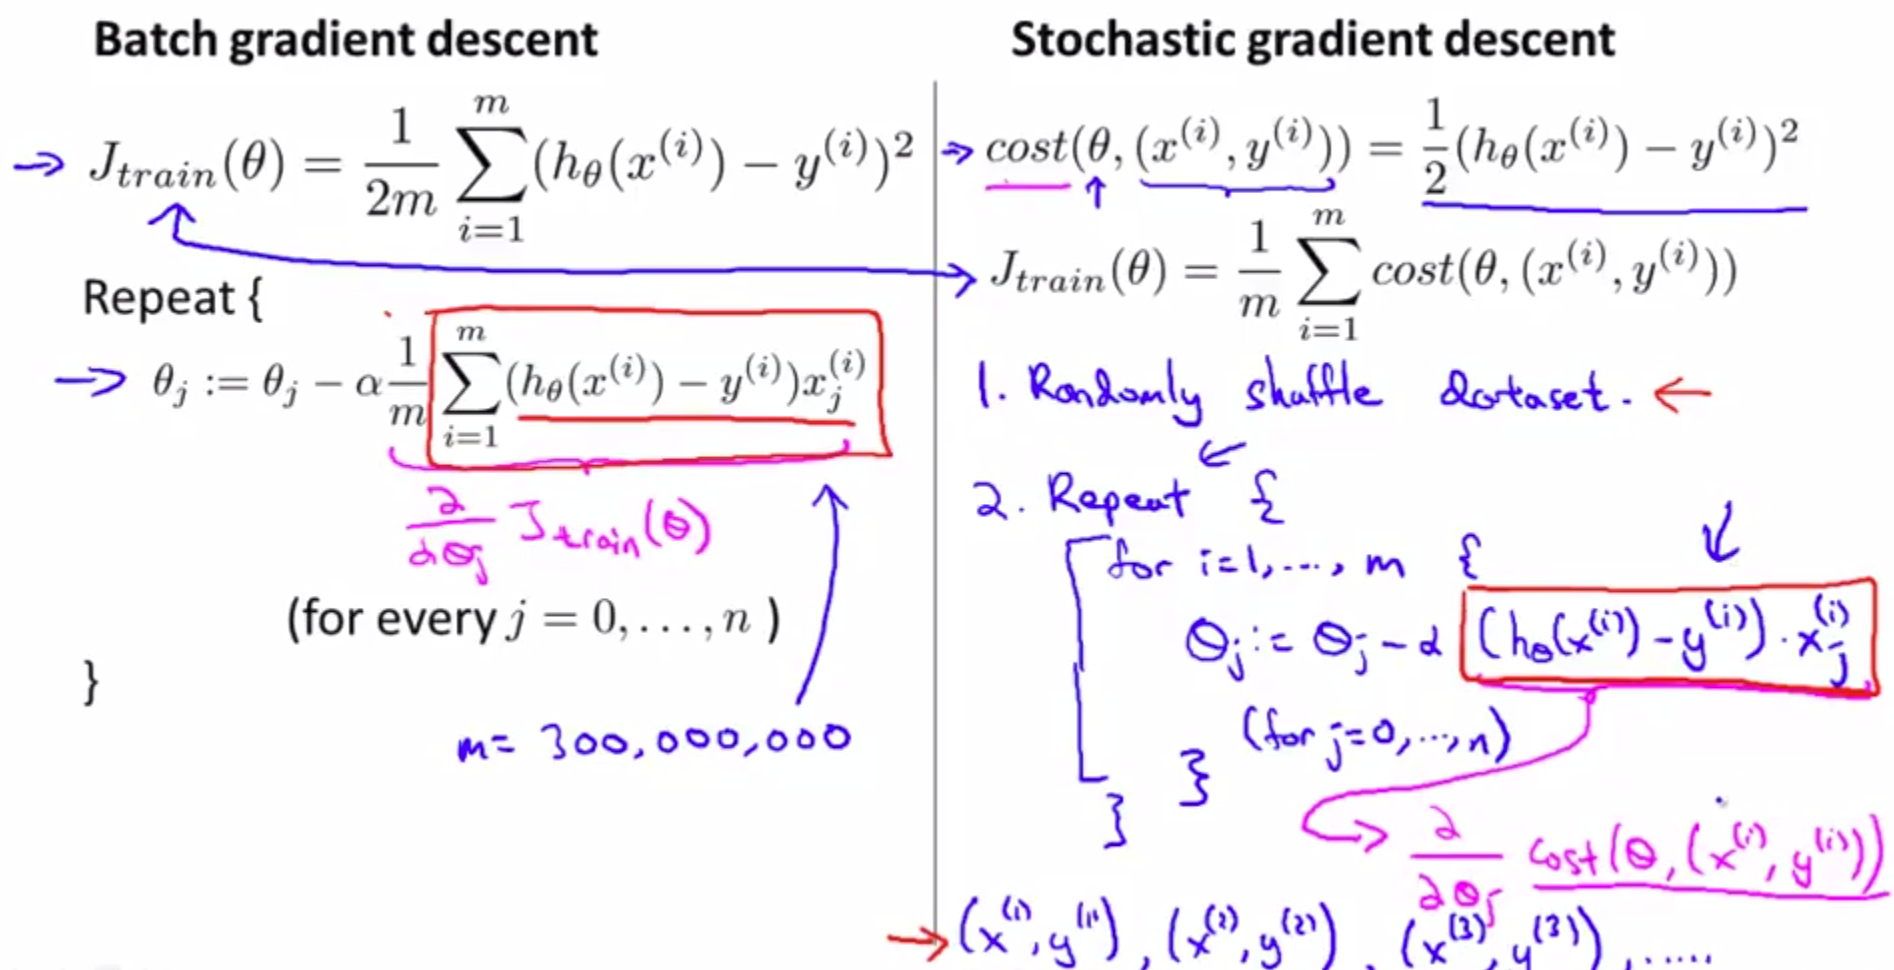 Batch gradient descent
J_train(θ) = 1/2m ∑_{i=1}^{m} (h_θ(x^(i)) − y^(i))²
Repeat {
θ_j := θ_j − α 1/m ∑_{i=1}^{m} (h_θ(x^(i)) − y^(i)) x_j^(i)
∂/∂θ_j J_train(θ)
(for every j = 0, . . . , n )
}
m = 300,000,000
Stochastic gradient descent
cost(θ, (x^(i), y^(i))) = 1/2 (h_θ(x^(i)) − y^(i))²
J_train(θ) = 1/m ∑_{i=1}^{m} cost(θ, (x^(i), y^(i)))
1. Randomly shuffle dataset.
2. Repeat {
for i=1, ..., m {
θ_j := θ_j − α (h_θ(x^(i)) − y^(i)) · x_j^(i)
(for j=0, ..., n)
}
}
∂/∂θ_j cost(θ, (x^(i), y^(i)))
(x^(1), y^(1)), (x^(2), y^(2)), (x^(3), y^(3)), .....